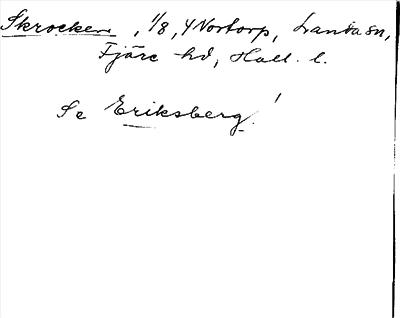 Skrocken, 1/8, Y Nortorp, Landa sn,
Fjäre hd, Hall. l.
Se Eriksberg!